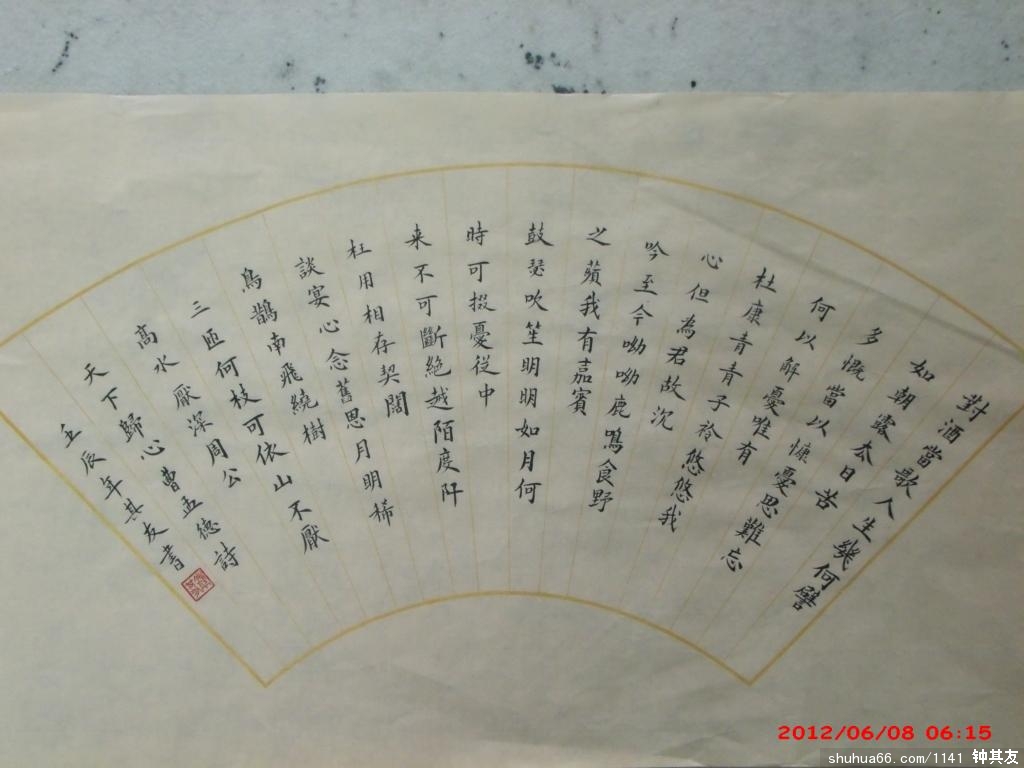 對酒當歌人生幾何譬
如朝露厺日苦
多慨當以慷憂思難忘
何以解憂唯有
杜康青青子衿悠悠我
心但為君故沉
吟至今呦呦鹿鳴食野
之蘋我有嘉賓
鼓瑟吹笙明明如月何
時可掇憂從中
来不可斷絕越陌度阡
枉用相存契闊
談宴心念舊思月明稀
烏鵲南飛繞樹
三匝何枝可依山不厭
高水厭深周公
天下歸心曹孟德詩
壬辰年其友書
2012/06/08 06:15
shuhua66.com/1141 钟其友